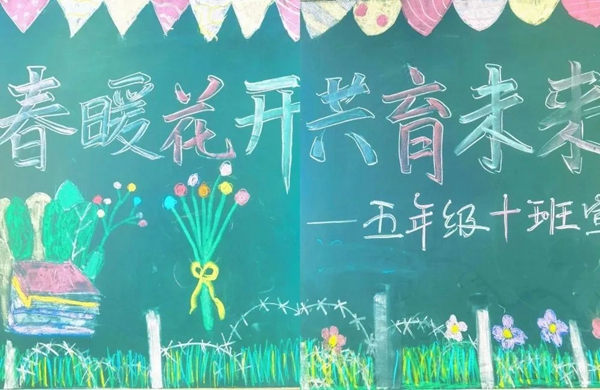 春暖花开 共育未来
—五年级十班宣